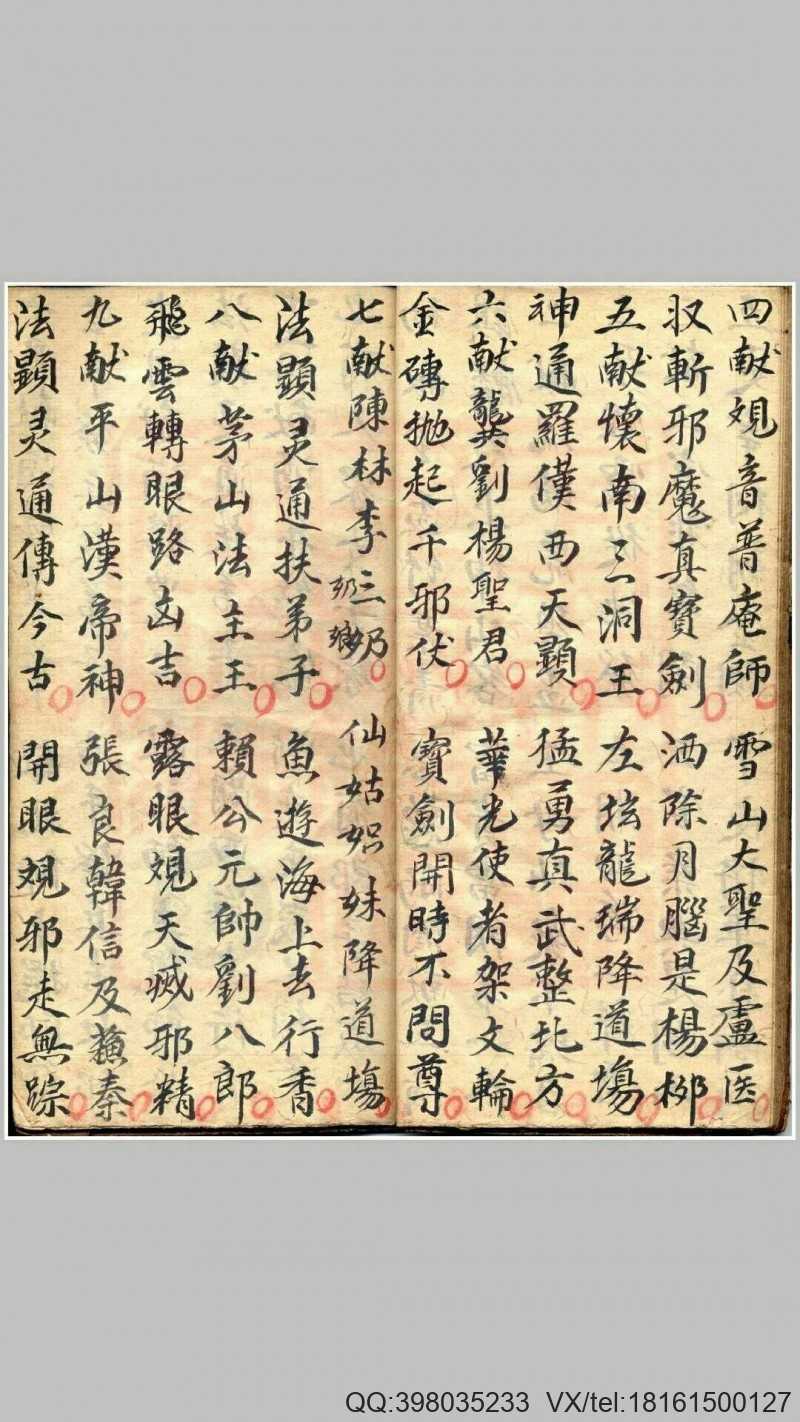 四献覌音普庵師 雪山大聖及盧医
収斬邪魔真寶劍 洒除月腦是楊柳
五献懐南三洞王 左坛龍瑞降道場
神通羅僕西天顕 猛勇真武整北方
六献龔劉楊聖君 華光使者架文輪
金磚抛起千邪伏 寶劍開時不問尊
七献陳林李三奶 仙姑姐妹降道塲
法顕灵通扶弟子 魚遊海上去行香
八献茅山法主王 賴公元帥劉八郎
飛雲轉眼路凶吉 露眼覌天滅邪精
九献平山漢帝神 張良韓信及蘓秦
法顕灵通傳今古 開眼覌邪走無踪
QQ:398035233 VX/tel:18161500127